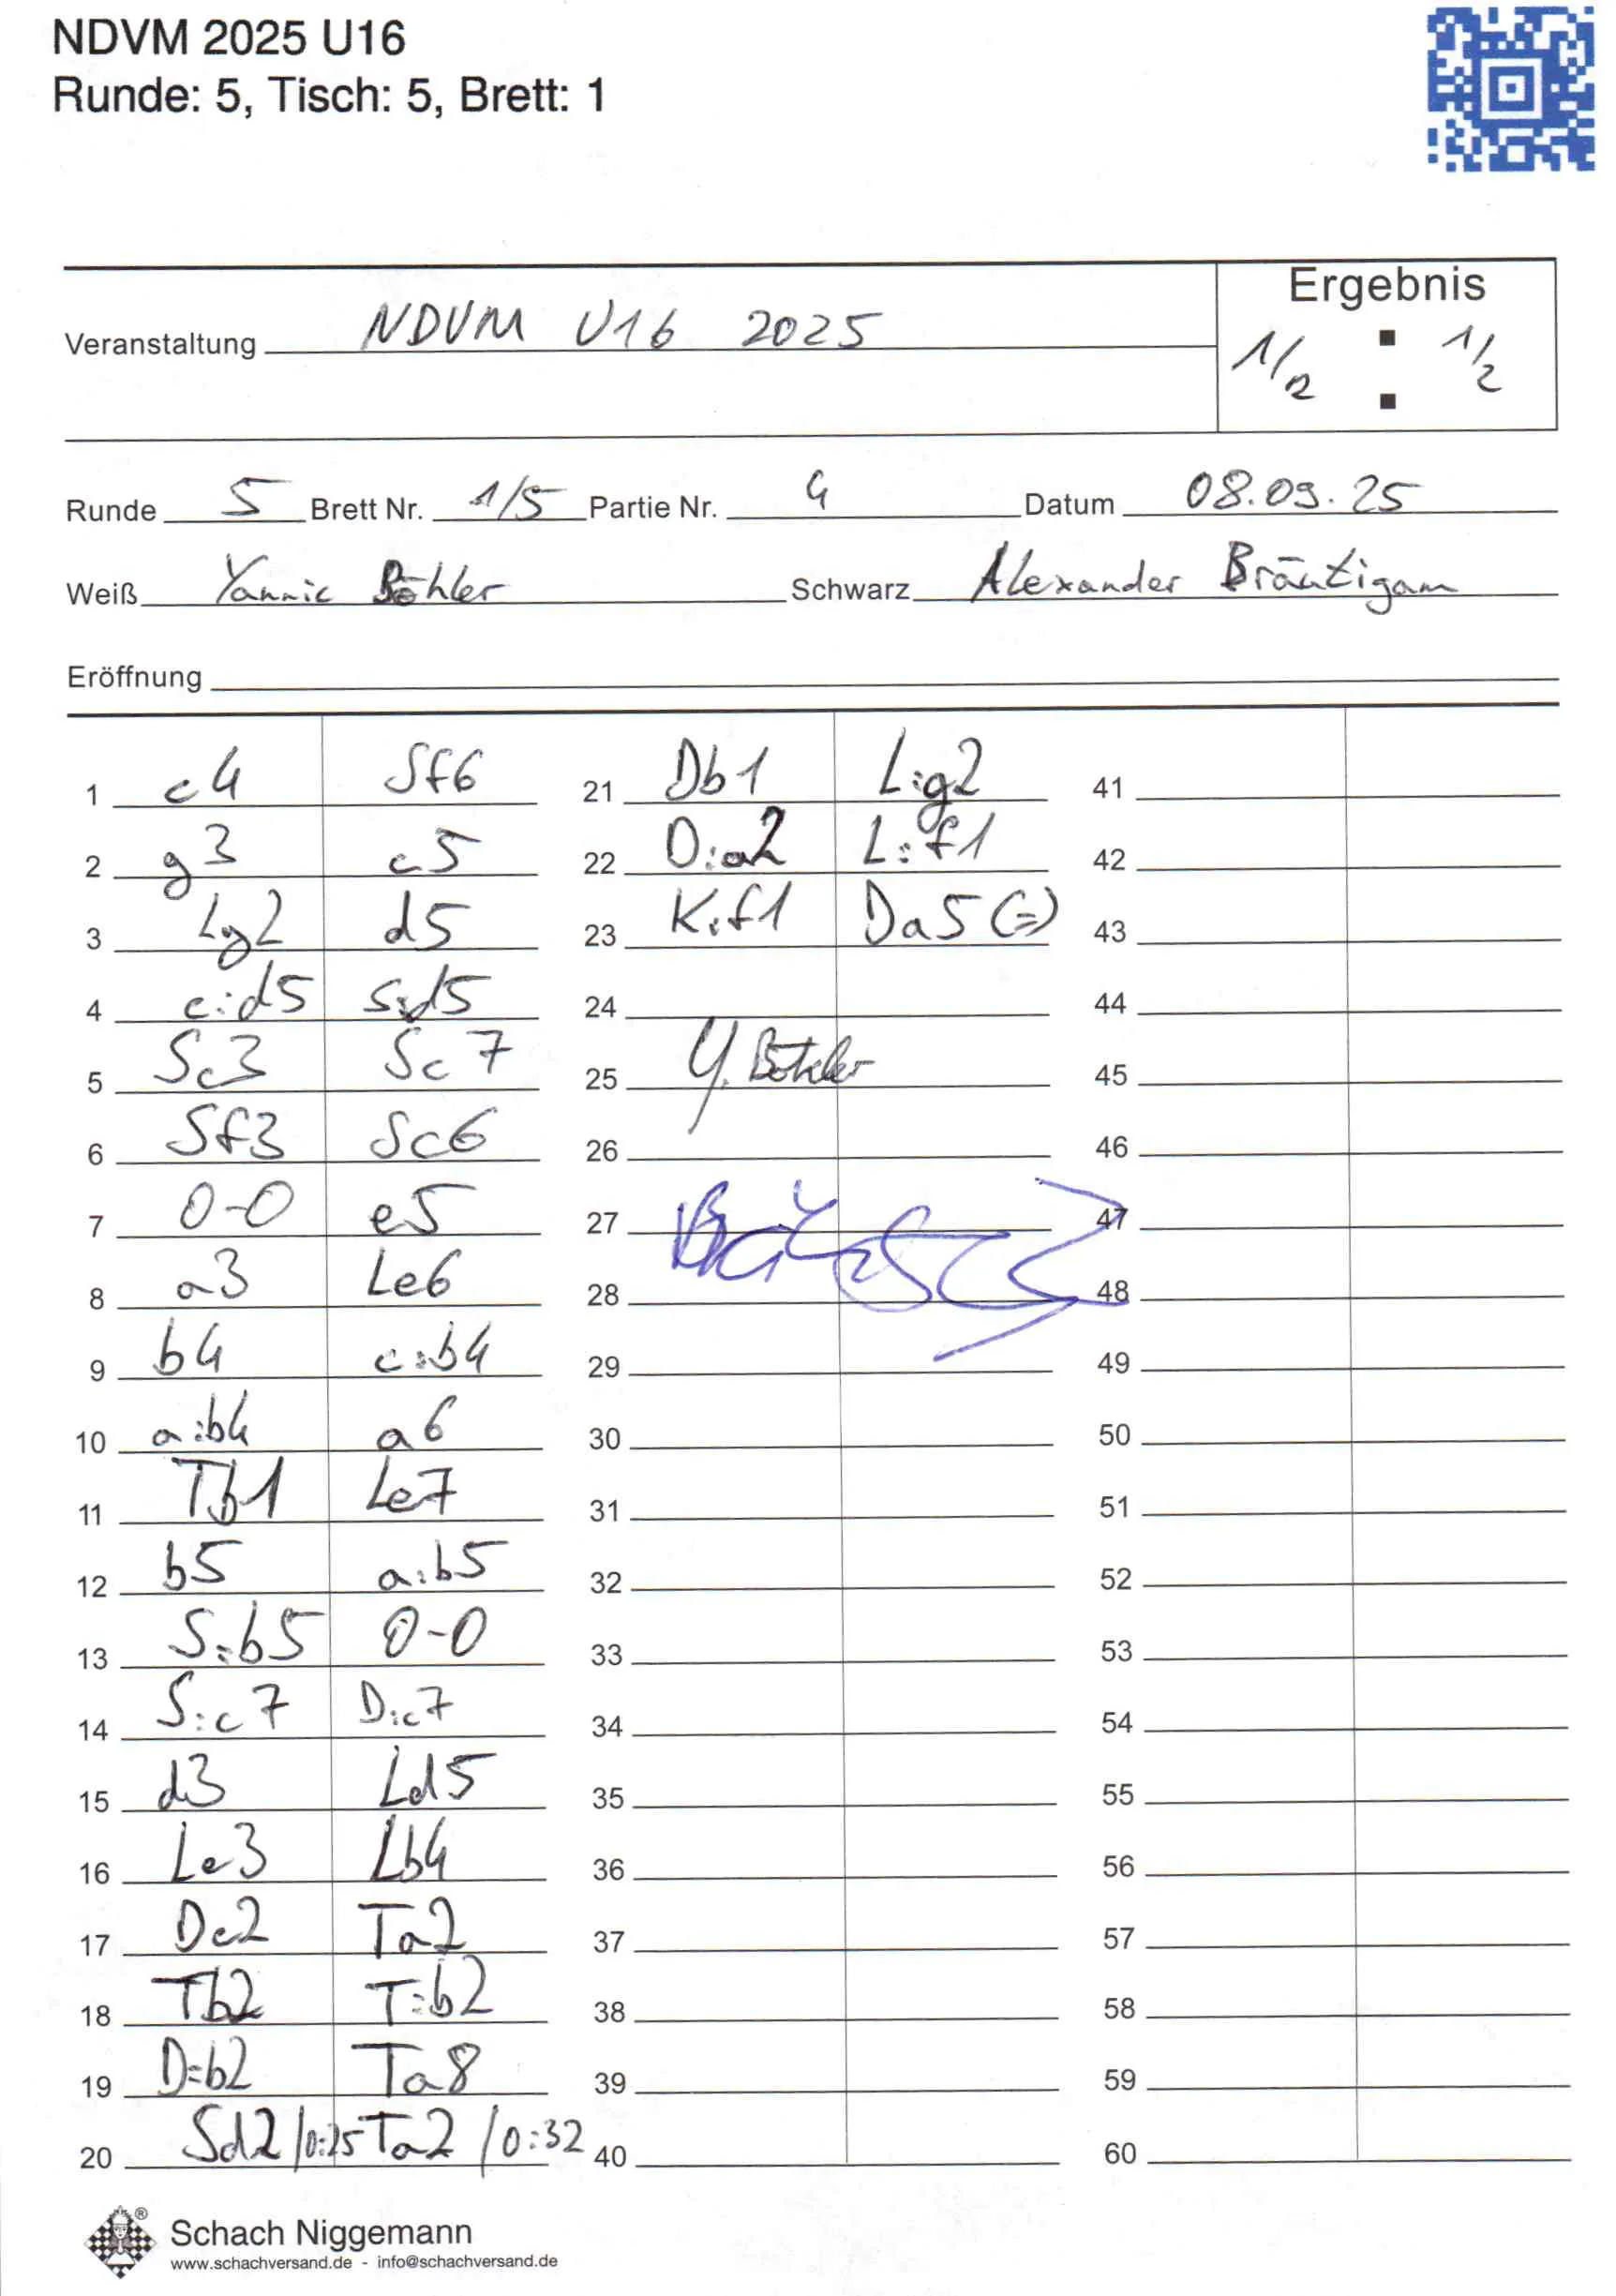 NDVM 2025 U16
Runde: 5, Tisch: 5, Brett: 1
Ergebnis
Veranstaltung NDVM U16 2025
1/2 : 1/2
Runde 5 Brett Nr. 1/5 Partie Nr. 4 Datum 08.09.25
Weiß Yannic Böhler Schwarz Alexander Bräutigam
Eröffnung
1 c4 Sf6 21 Db1 L:g2 41
2 g3 c5 22 D:a2 L:f1 42
3 Lg2 d5 23 K:f1 Da5 (=) 43
4 c:d5 S:d5 24 44
5 Sc3 Sc7 25 Y. Böhler 45
6 Sf3 Sc6 26 46
7 0-0 e5 27 47
8 a3 Le6 28 48
9 b4 c:b4 29 49
10 a:b4 a6 30 50
11 Tb1 Le7 31 51
12 b5 a:b5 32 52
13 S:b5 0-0 33 53
14 S:c7 D:c7 34 54
15 d3 Ld5 35 55
16 Le3 Lb4 36 56
17 Dc2 Ta2 37 57
18 Tb2 T:b2 38 58
19 D:b2 Ta8 39 59
20 Sd2 /0:25 Ta2 /0:32 40 60
®
Schach Niggemann
www.schachversand.de - info@schachversand.de